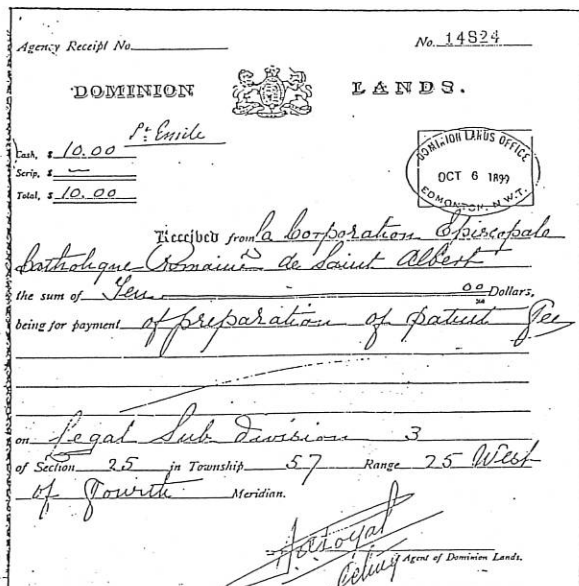 Agency Receipt No.
No. 14824
DOMINION LANDS.
St. Emile
Cash, $ 10.00
Scrip, $ —
Total, $ 10.00
DOMINION LANDS OFFICE
OCT 6 1899
EDMONTON, N.W.T.
Received from la Corporation Episcopale
Catholique Romaine de Saint Albert
the sum of Ten 00 Dollars,
being for payment of preparation of patent Fee
on Legal Sub division 3
of Section 25 in Township 57 Range 25 West
of Fourth Meridian.
Acting Agent of Dominion Lands.